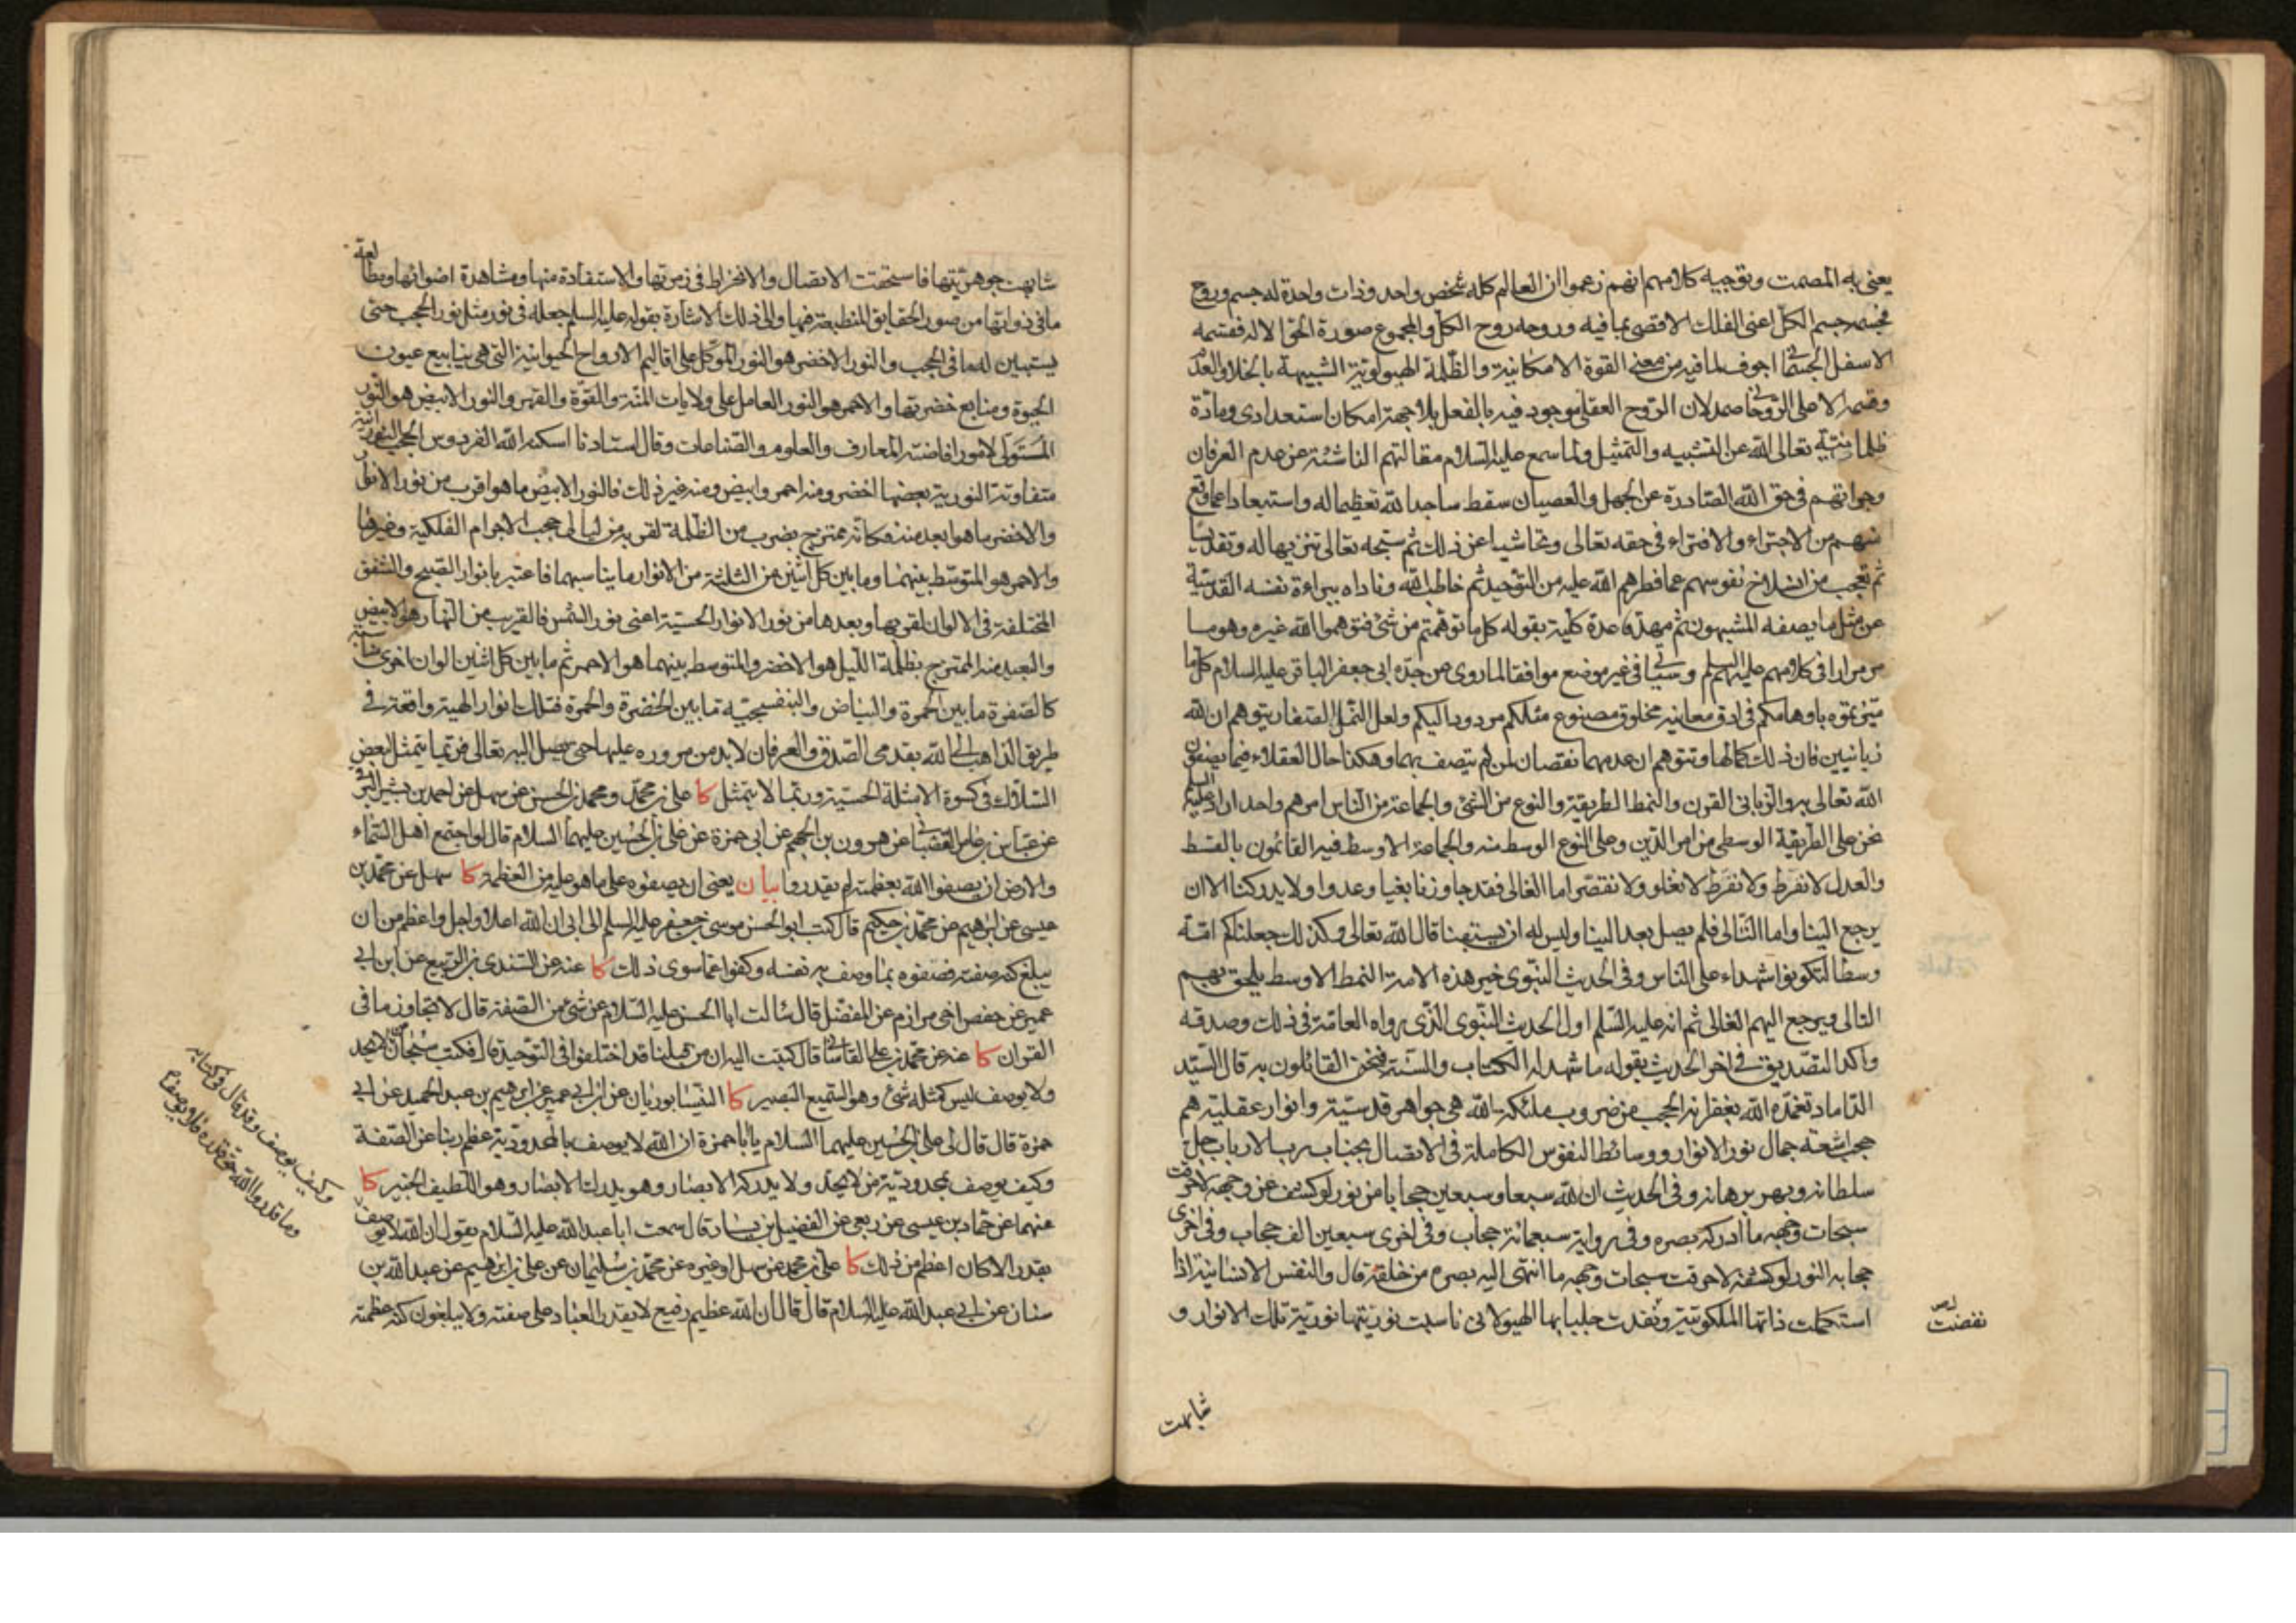 يعنى به المصمت وتوجيه كلامهم انهم زعموا ان العالم كله شخص واحد وذات واحدة له جسم وروح
فجسمه جسم الكل اعنى الفلك الاقصى بما فيه وروحه روح الكل والمجموع صورة الحق الاله فقسمه
الاسفل الجسمانى اجوف لما فيه من معنى القوة الامكانية والظلمة الهيولوية الشبيهة بالخلاء والعدم
وقسمه الاعلى الروحانى صمد لان الروح العقلى موجود فيه بالفعل بلا جهة امكان استعدادى ومادة
ظلمانية تعالى الله عن التشبيه والتمثيل ولما سمع عليه السلام مقالتهم الناشئة عن عدم العرفان
وجراتهم فى حق الله الصادرة عن الجهل والعصيان سقط ساجدا لله تعظيما له واستبعادا عما وقع
منهم من الاجتراء والافتراء فى حقه تعالى وتحاشيا عن ذلك ثم سبحه تعالى تنزيها له وتقديسا
ثم تعجب من انسلاخ نفوسهم عما فطرهم الله عليه من التوحيد ثم خاطب الله وناداه ببراءة نفسه القدسية
عن مثل ما يصفه المشبهون ثم مهد قاعدة كلية بقوله كل ما توهمتم من شئ فتوهموا الله غيره وهو مما
مر مرارا فى كلامهم عليهم السلم وسياتى فى غير موضع موافقا لما روى عن جده ابى جعفر الباقر عليه السلام كل ما
ميزتموه باوهامكم فى ادق معانيه مخلوق مصنوع مثلكم مردود اليكم ولعل النمل الصغار يتوهم ان لله
زبانيين فان ذلك كمالها وتتوهم ان عدمهما نقصان لمن لم يتصف بهما وهكذا حال العقلاء فيما يصفون
الله تعالى به والزبانى القرون والنمط الطريقة والنوع من الشئ والجماعة من الناس امرهم واحد اراد عليه السلم
نحن على الطريقة الوسطى من امر الدين وعلى النوع الوسط منه والجماعة الاوسط فيه القائمون بالقسط
والعدل لا نفرط ولا نفرط لا نغلو ولا نقصر اما الغالى فقد جاوزنا بغيا وعدوا ولا يدركنا الا ان
يرجع الينا واما التالى فلم يصل بعد الينا وليس له ان يسبقنا قال الله تعالى وكذلك جعلناكم امة
وسطا لتكونوا شهداء على الناس وفى الحديث النبوى خير هذه الامة النمط الاوسط يلحق بهم
التالى ويرجع اليهم الغالى ثم انه عليه السلم اول الحديث النبوى الذى رواه العامة فى ذلك وصدقه
واكد التصديق فى اخر الحديث بقوله ما شهد له الكتاب والسنة فنحن القائلون به قال السيد
الداماد تغمده الله بغفرانه الحجب من ضروب ملئكة الله هى جواهر قدسية وانوار عقلية هم
حجب اشعة جمال نور الانوار ووسائط النفوس الكاملة فى الاتصال بجناب رب الارباب جل
سلطانه وبهر برهانه وفى الحديث ان لله سبعا وسبعين حجابا من نور لو كشف عن وجهه لاحرقت
سبحات وجهه ما ادركه بصره وفى رواية سبعمائة حجاب وفى اخرى سبعين الف حجاب وفى اخرى
حجابه النور لو كشفه لاحرقت سبحات وجهه ما انتهى اليه بصره من خلقه قال والنفس الانسانية اذا
استكملت ذاتها الملكوتية ونفدت جلبابها الهيولانى ناسبت نوريتها نورية تلك الانوار و
نفضت
شابهت
شابهت جوهريتها فاستحقت الاتصال والانخراط فى زمرتها والاستفادة منها ومشاهدة اضوائها ومطالعة
ما فى ذواتها من صور الحقايق المنطبعة فيها والى ذلك الاشارة بقوله عليه السلم جعله فى نور مثل نور الحجب حتى
يستبين له ما فى الحجب والنور الاخضر هو النور الموكل على اقاليم الارواح الحيوانية التى هى ينابيع عيون
الحيوة ومنابع خضرتها والاحمر هو النور العامل على ولايات المنة والقوة والقهر والنور الابيض هو النور
المستولى لامور افاضة المعارف والعلوم والصناعات وقال استادنا اسكنه الله الفردوس الحجب النورانية
متفاوتة النورية بعضها اخضر ومنه احمر وابيض ومنه غير ذلك فالنور الابيض ما هو اقرب من نور الانوار
والاخضر ما هو ابعد منه فكانه ممتزج بضرب من الظلمة لقربه من ليالى حجب الاجرام الفلكية وغيرها
والاحمر هو المتوسط بينهما وما بين كل اثنين من الثلثة من الانوار ما يناسبهما فاعتبر بانوار الصبح والشفق
المختلفة فى الالوان لقربها وبعدها من نور الانوار الحسية اعنى نور الشمس فالقريب من النهار هو الابيض
والبعيد منه الممتزج بظلمة الليل هو الاخضر والمتوسط بينهما هو الاحمر ثم ما بين كل اثنين الوان اخرى مناسبة
كالصفرة ما بين الحمرة والبياض والبنفسجية ما بين الخضرة والحمرة فتلك انوار الهية واقعة فى
طريق الذاهب الى الله بقدمى الصدق والعرفان لابد من مروره عليها حتى يصل اليه تعالى فربما يتمثل لبعض
السلاك فى كسوة الامثلة الحسية وربما لا يتمثل كا على بن محمد ومحمد بن الحسن عن سهل عن احمد بن بشير البرقى
عن عباس بن عامر القصبانى عن هرون بن الجهم عن ابى حمزة عن على بن الحسين عليهما السلام قال لو اجتمع اهل السماء
والارض ان يصفوا الله بعظمته لم يقدروا بيان يعنى ان يصفوه على ما هو عليه من العظمة كا سهل عن محمد بن
عيسى عن ابرهيم عن محمد بن حكيم قال كتب ابو الحسن موسى بن جعفر عليه السلم الى ابى ان الله اعلا واجل واعظم من ان
يبلغ كنه صفته فصفوه بما وصف به نفسه وكفوا عما سوى ذلك كا عنه عن السندى بن الربيع عن ابن ابى
عمير عن حفص اخى مرازم عن المفضل قال سالت ابا الحسن عليه السلام عن شئ من الصفة قال لا تجاوز ما فى
القران كا عنه عن محمد بن على القاسانى قال كتبت اليه ان من قبلنا قد اختلفوا فى التوحيد قال فكتب سبحان من لا يحد
ولا يوصف ليس كمثله شئ وهو السميع البصير كا النيسابوريان عن ابن ابى عمير عن ابرهيم بن عبد الحميد عن ابى
حمزة قال قال لى على بن الحسين عليهما السلام يا ابا حمزة ان الله لا يوصف بالمحدودية عظم ربنا عن الصفة
وكيف يوصف بمحدودية من لا يحد ولا يدركه الابصار وهو يدرك الابصار وهو اللطيف الخبير كا
عنهما عن حماد بن عيسى عن ربعى عن الفضيل بن يسار قال سمعت ابا عبد الله عليه السلام يقول ان الله لا يوصف
بقدر الا كان اعظم من ذلك كا على بن محمد عن سهل او غيره عن محمد بن سليمان عن على بن ابرهيم عن عبد الله بن
سنان عن ابى عبد الله عليه السلام قال قال ان الله عظيم رفيع لا يقدر العباد على صفته ولا يبلغون كنه عظمته
وكيف يوصف وقد قال فى كتابه
وما قدروا الله حق قدره فلا يوصف